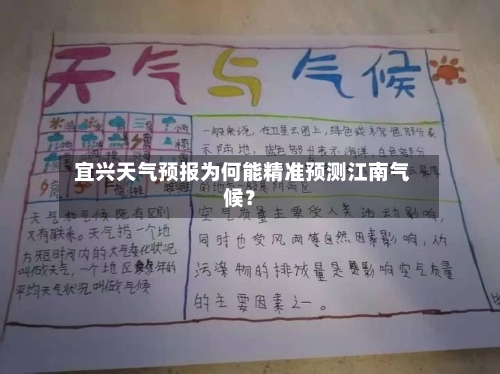 天气与气候
一般来说，在卫星云图上，绿色
示陆地，蓝色部分表示海洋，白色部分
宜兴天气预报为何能精准预测江南气
候？
天气和气候既有区别
又有联系。天气指一个地
方短时间内的大气变化状况
叫做天气，一个地区多年的
平均天气状况叫做气候
空气质量主要受人类活动影响，
同时也受风雨等自然因素影响，
污染物的排放量是影响空气质量
的主要因素之一。